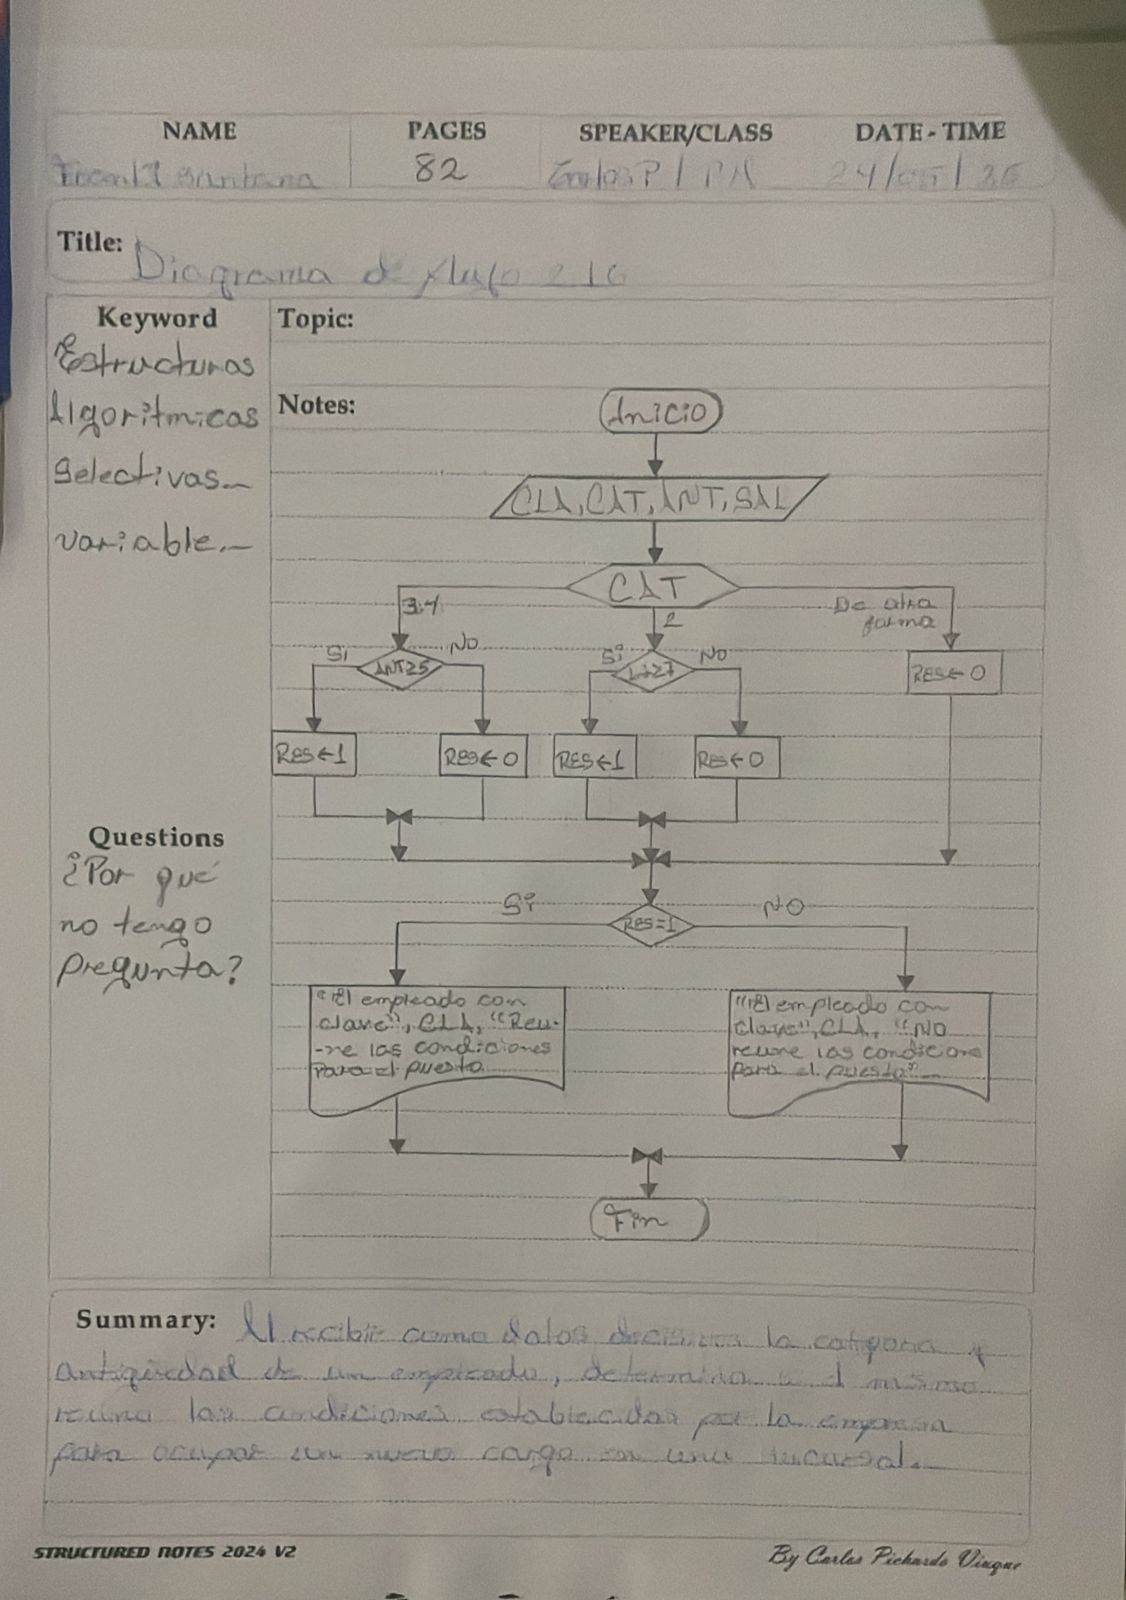 NAME PAGES SPEAKER/CLASS DATE - TIME
Santana 82 24/
Title: Diagrama de flujo 2.16
Keyword
Estructuras
Algoritmicas
Selectivas
variable.
Topic:
Notes:
Inicio
CLA, CAT, ANT, SAL
CAT
3.4
2
De otra
forma
Si
No
Si
No
RES←0
RES←1
RES←0
RES←1
RES←0
Questions
¿Por qué
no tengo
pregunta?
Si
NO
RES=1
"El empleado con
clave", CLA, "Reu-
-ne las condiciones
para el puesto
"El empleado con
clave", CLA, "NO
reune las condicione
para el puesto"
Fin
Summary: Al recibir como datos la categoria y
antigüedad de un empleado, determina si el mismo
reune las condiciones establecidas por la empresa
para ocupar un nuevo cargo en una sucursal.
STRUCTURED NOTES 2024 V2
By Carlos Pichardo Viuque